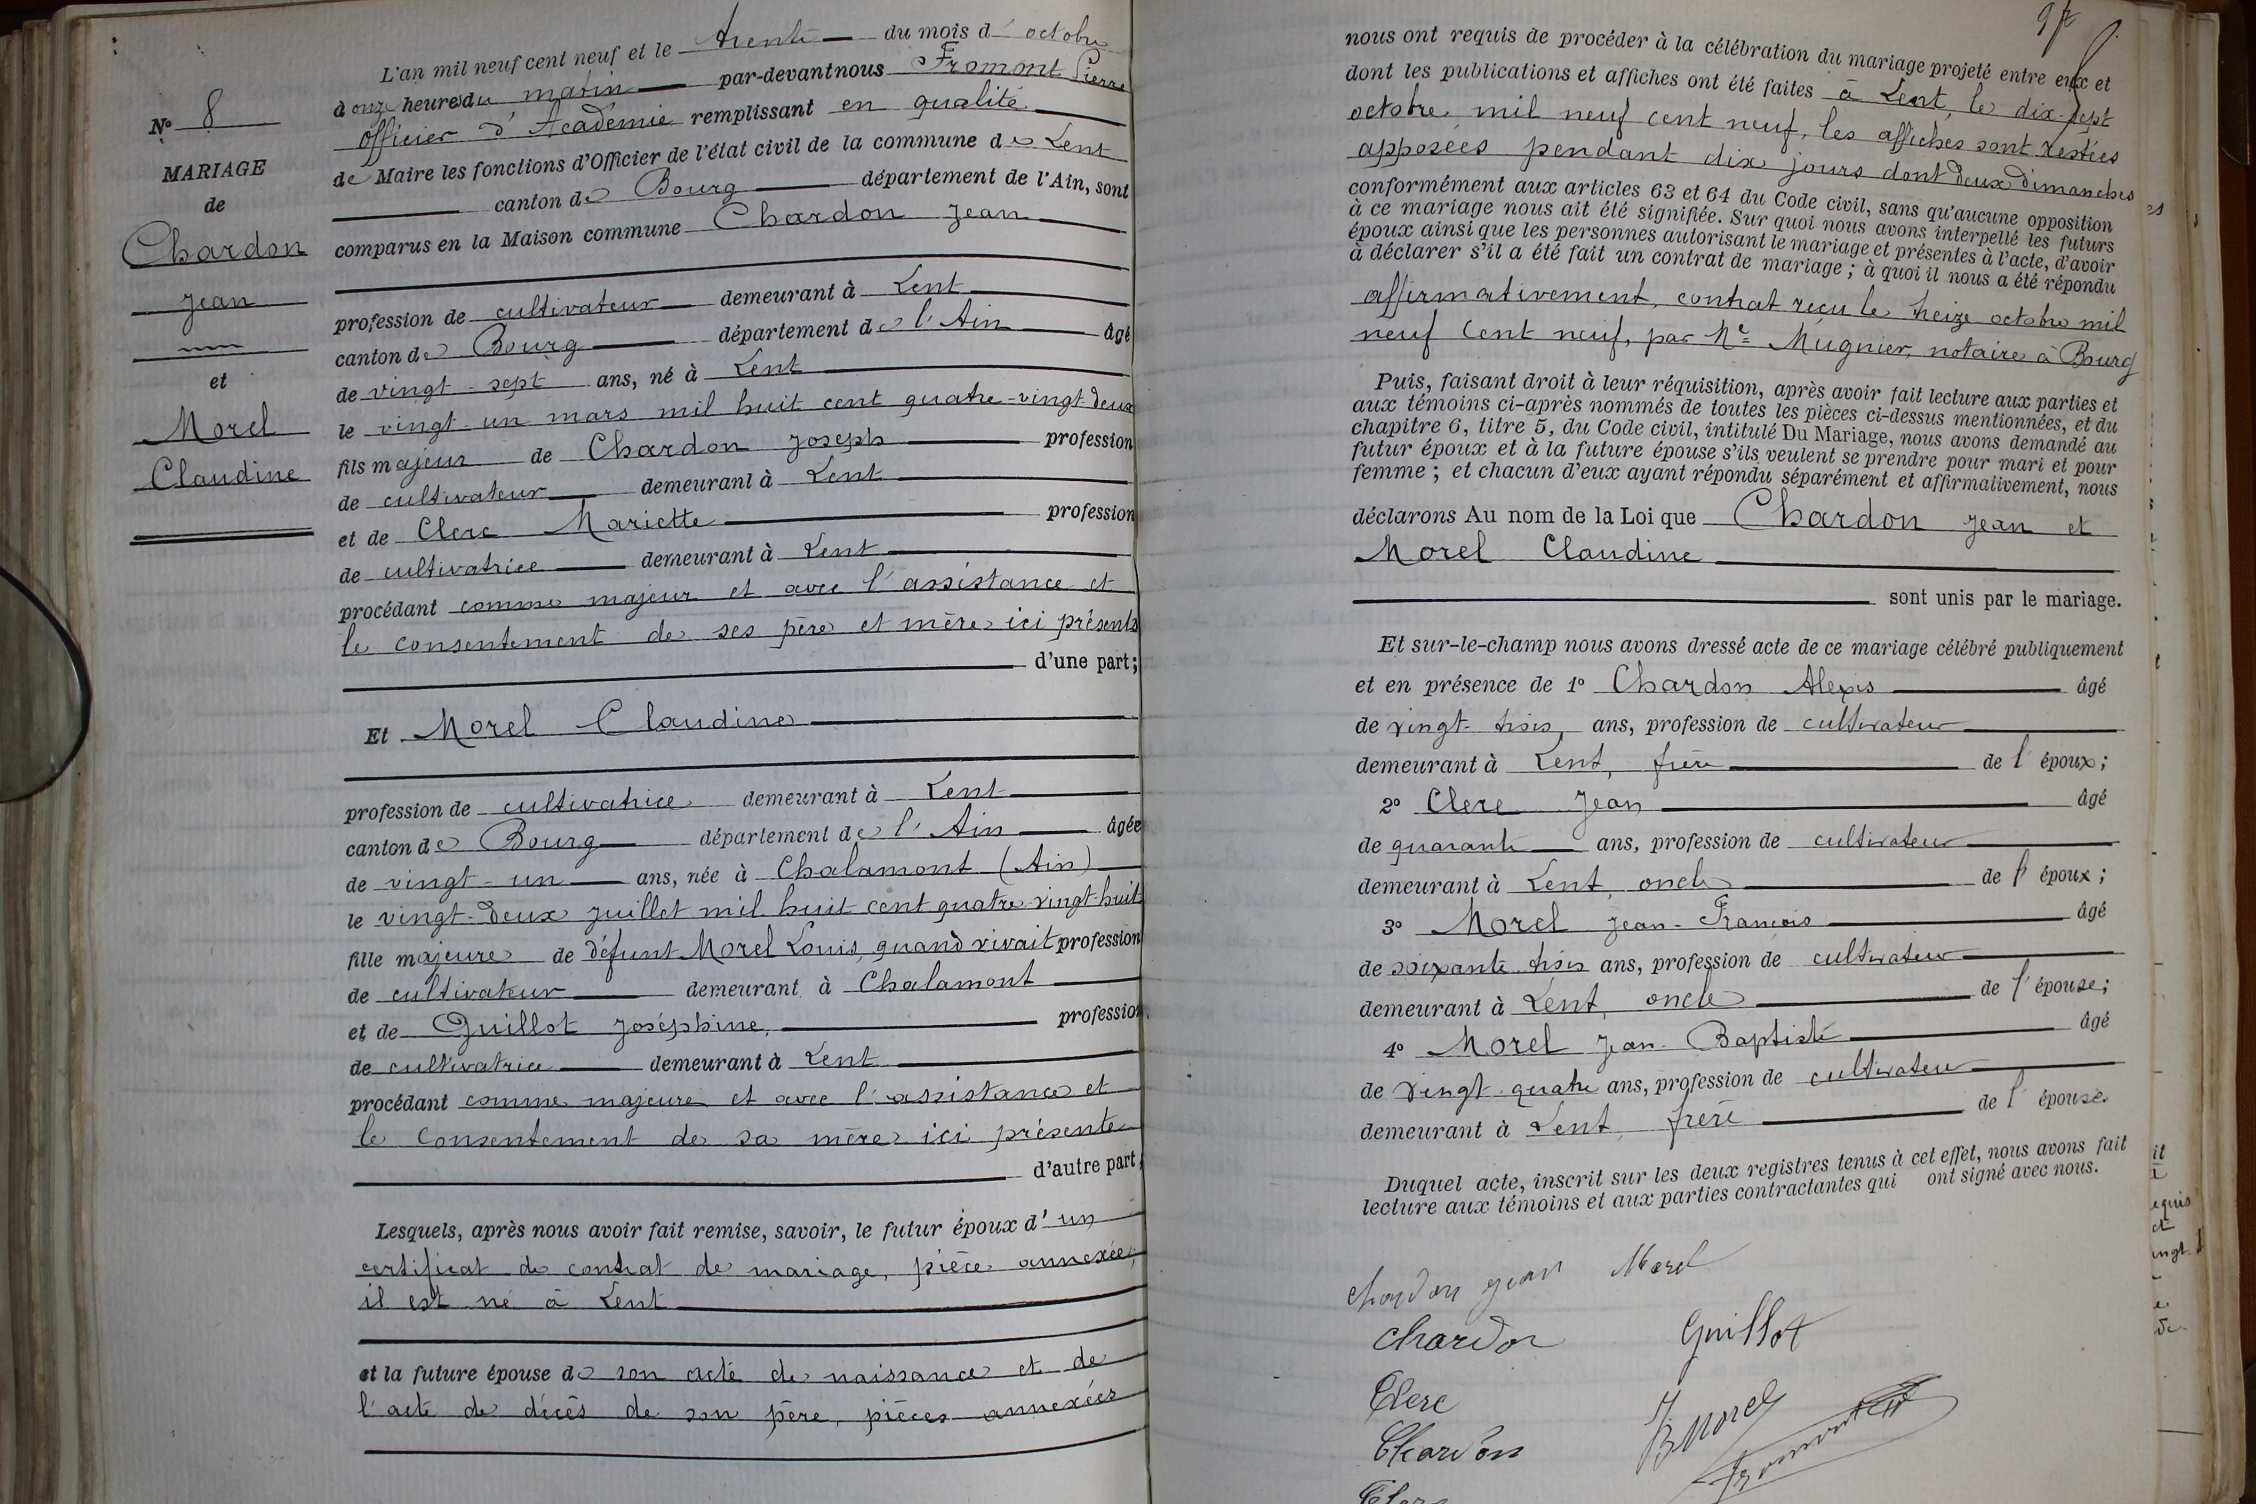 N° 8
MARIAGE
de
Chardon
Jean
et
Morel
Claudine
L'an mil neuf cent neuf et le trente du mois d'octobre
à onze heures du matin par-devant nous Fromont Pierre
officier d'Académie remplissant en qualité
de Maire les fonctions d'Officier de l'état civil de la commune de Lent
canton de Bourg département de l'Ain, sont
comparus en la Maison commune Chardon Jean
profession de cultivateur demeurant à Lent
canton de Bourg département de l'Ain âgé
de vingt-sept ans, né à Lent
le vingt-un mars mil huit cent quatre-vingt-deux
fils majeur de Chardon Joseph profession
de cultivateur demeurant à Lent
et de Clerc Mariette profession
de cultivatrice demeurant à Lent
procédant comme majeur et avec l'assistance et
le consentement de ses père et mère ici présents
d'une part;
Et Morel Claudine
profession de cultivatrice demeurant à Lent
canton de Bourg département de l'Ain âgée
de vingt-un ans, née à Chalamont (Ain)
le vingt-deux juillet mil huit cent quatre-vingt-huit
fille majeure de défunt Morel Louis, quand vivait profession
de cultivateur demeurant à Chalamont
et de Guillot Joséphine, profession
de cultivatrice demeurant à Lent
procédant comme majeure et avec l'assistance et
le consentement de sa mère ici présente
d'autre part;
Lesquels, après nous avoir fait remise, savoir, le futur époux d'un
certificat de contrat de mariage, pièce annexée,
il est né à Lent
et la future épouse de son acte de naissance et de
l'acte de décès de son père, pièces annexées
97
nous ont requis de procéder à la célébration du mariage projeté entre eux et
dont les publications et affiches ont été faites à Lent, le dix-sept
octobre mil neuf cent neuf, les affiches sont restées
apposées pendant dix jours dont deux dimanches
conformément aux articles 63 et 64 du Code civil, sans qu'aucune opposition
à ce mariage nous ait été signifiée. Sur quoi nous avons interpellé les futurs
époux ainsi que les personnes autorisant le mariage et présentes à l'acte, d'avoir
à déclarer s'il a été fait un contrat de mariage; à quoi il nous a été répondu
affirmativement, contrat reçu le treize octobre mil
neuf cent neuf, par Me Mugnier, notaire à Bourg
Puis, faisant droit à leur réquisition, après avoir fait lecture aux parties et
aux témoins ci-après nommés de toutes les pièces ci-dessus mentionnées, et du
chapitre 6, titre 5, du Code civil, intitulé Du Mariage, nous avons demandé au
futur époux et à la future épouse s'ils veulent se prendre pour mari et pour
femme; et chacun d'eux ayant répondu séparément et affirmativement, nous
déclarons Au nom de la Loi que Chardon Jean et
Morel Claudine
sont unis par le mariage.
Et sur-le-champ nous avons dressé acte de ce mariage célébré publiquement
et en présence de 1° Chardon Alexis âgé
de vingt-trois, ans, profession de cultivateur
demeurant à Lent, frère de l'époux;
2° Clerc Jean âgé
de quarante ans, profession de cultivateur
demeurant à Lent, oncle de l'époux;
3° Morel Jean-François âgé
de soixante-trois ans, profession de cultivateur
demeurant à Lent, oncle de l'épouse;
4° Morel Jean-Baptiste âgé
de vingt-quatre ans, profession de cultivateur
demeurant à Lent, frère de l'épouse.
Duquel acte, inscrit sur les deux registres tenus à cet effet, nous avons fait
lecture aux témoins et aux parties contractantes qui ont signé avec nous.
chardon jean Morel
chardon Guillot
Clerc
JB Morel
Chardon
Fromont
Clerc